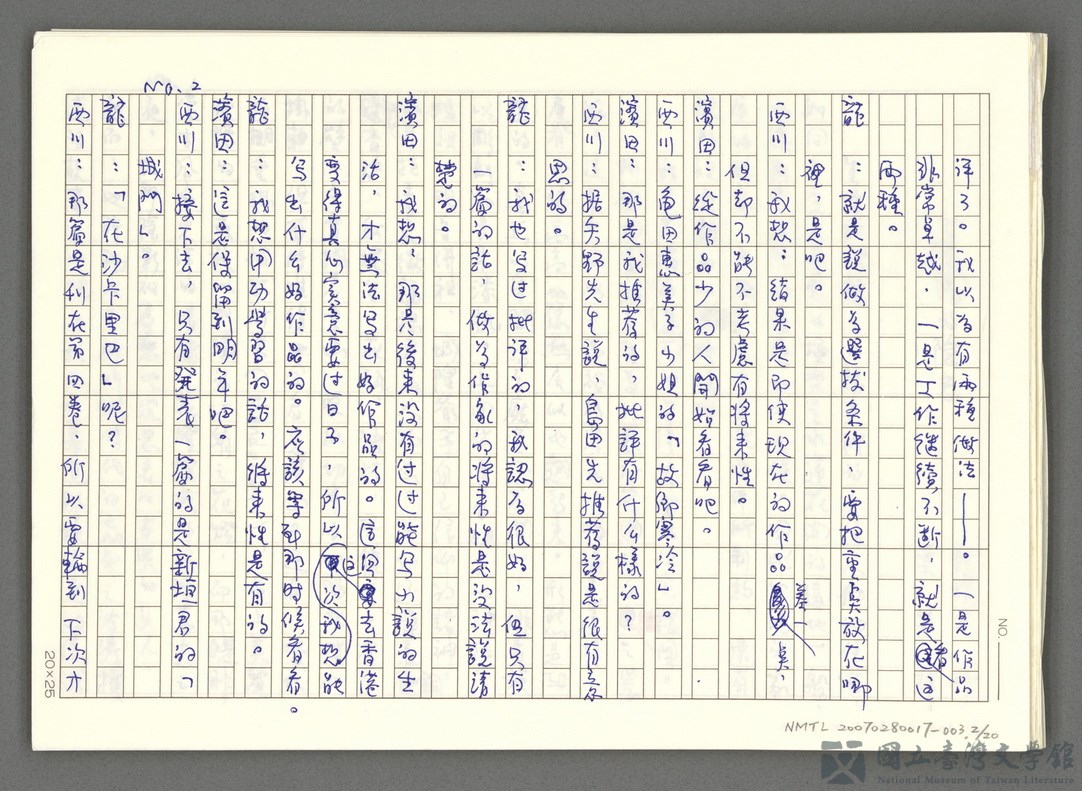 No. 2
評了。我以為有兩種做法——。一是作品
非常卓越，一是工作继續不断，就是看這
兩種。
龍：就是說做為選拔条件，要把重奌放在哪
裡，是吧。
西川：我想：結果是即使現在的作品差一奌，
但却不能不考慮有将来性。
濱田：從作品少的人開始看看吧。
西川：龜田惠美子小姐的「故鄉寒冷」。
濱田：那是我推荐的，批評有什么樣的？
西川：据矢野先生說，島田先推荐說是很有意
思的。
龍：我也写过批评的，我認為很好，但只有
一篇的話，做為作家的将来性是沒法說清
楚的。
濱田：我想：那是後来沒有过过能写小說的生
活，才無法写出好作品的。這回去香港
变得真心实意要过日子，所以這次我想能
写出什么好作品的。应該等到那时候看看。
龍：我想用功學習的話，将来性是有的。
濱田：這是保留到明年吧。
西川：接下去，只有発表一篇的是新垣君的「
城門」。
龍：「在沙卡里巴」呢？
西川：那篇是刊在第四卷，所以要輪到下次才
NO.
20×25
NMTL 20070280017-003. 2/20
國立臺灣文學館
National Museum of Taiwan Literature